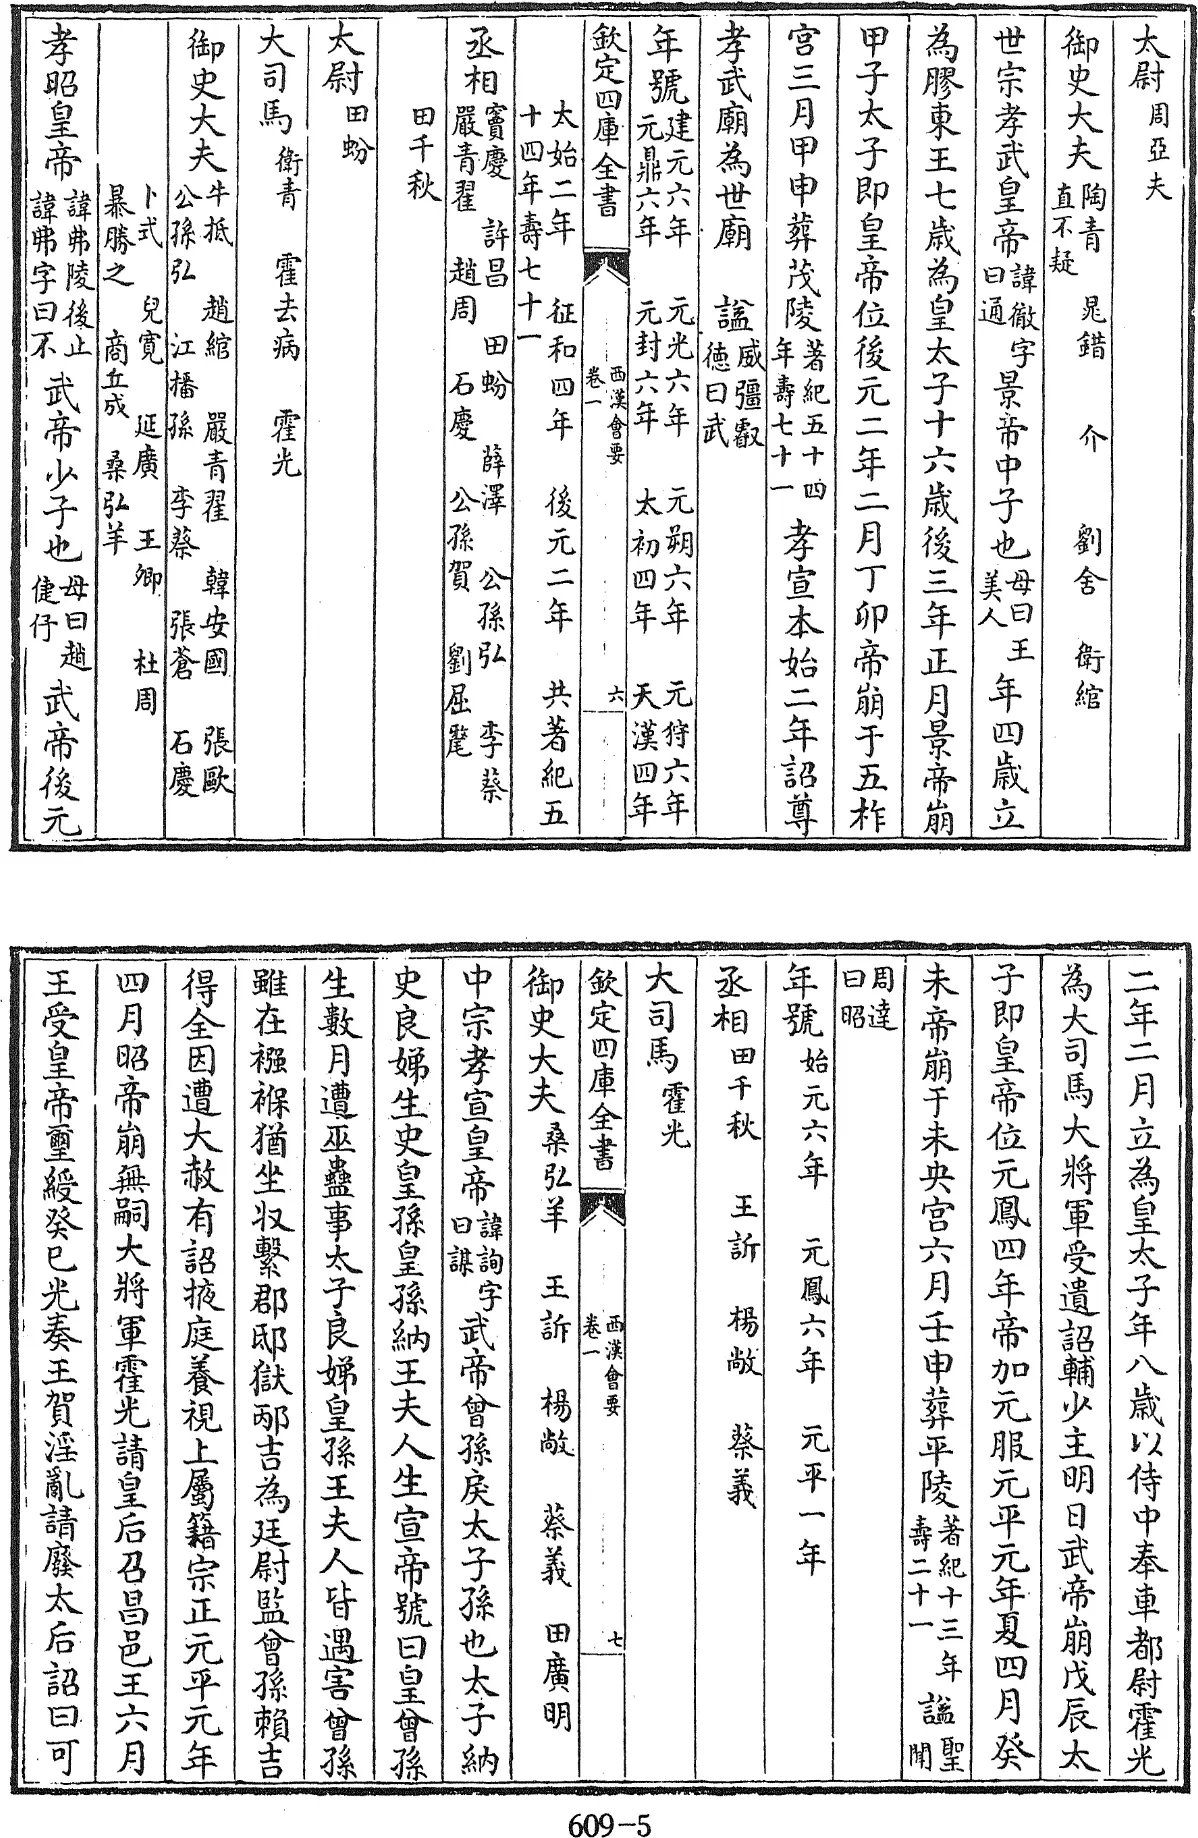 太尉 周亞夫
御史大夫 陶青 直不疑 晁錯 介 劉舍 衛綰
世宗孝武皇帝 諱徹字曰通 景帝中子也 母曰王美人 年四歲立
為膠東王七歲為皇太子十六歲後三年正月景帝崩
甲子太子即皇帝位後元二年二月丁卯帝崩于五柞
宮三月甲申葬茂陵 著紀五十四年壽七十一 孝宣本始二年詔尊
孝武廟為世廟 諡 威彊叡德曰武
年號 建元六年 元光六年 元朔六年 元狩六年 元鼎六年 元封六年 太初四年 天漢四年
欽定四庫全書 西漢會要 卷一 六
太始二年 征和四年 後元二年 共著紀五十四年壽七十一
丞相 竇嬰 許昌 田蚡 薛澤 公孫弘 李蔡 嚴青翟 趙周 石慶 公孫賀 劉屈氂
田千秋
太尉 田蚡
大司馬 衛青 霍去病 霍光
御史大夫 牛抵 趙綰 嚴青翟 韓安國 張歐 公孫弘 江播孫 李蔡 張蒼 石慶
卜式 兒寬 延廣 王卿 杜周 暴勝之 商丘成 桑弘羊
孝昭皇帝 諱弗陵後止諱弗字曰不 武帝少子也 母曰趙倢伃 武帝後元
二年二月立為皇太子年八歲以侍中奉車都尉霍光
為大司馬大將軍受遺詔輔少主明日武帝崩戊辰太
子即皇帝位元鳳四年帝加元服元平元年夏四月癸
未帝崩于未央宮六月壬申葬平陵 著紀十三年壽二十一 諡 聖聞
周達曰昭
年號 始元六年 元鳳六年 元平一年
丞相 田千秋 王訢 楊敞 蔡義
大司馬 霍光
欽定四庫全書 西漢會要 卷一 七
御史大夫 桑弘羊 王訢 楊敞 蔡義 田廣明
中宗孝宣皇帝 諱詢字曰謀 武帝曾孫戾太子孫也太子納
史良娣生史皇孫皇孫納王夫人生宣帝號曰皇曾孫
生數月遭巫蠱事太子良娣皇孫王夫人皆遇害曾孫
雖在襁褓猶坐収繫郡邸獄邴吉為廷尉監曾孫賴吉
得全因遭大赦有詔掖庭養視上屬籍宗正元平元年
四月昭帝崩無嗣大將軍霍光請皇后召昌邑王六月
王受皇帝璽綬癸巳光奏王賀淫亂請廢太后詔曰可
609-5